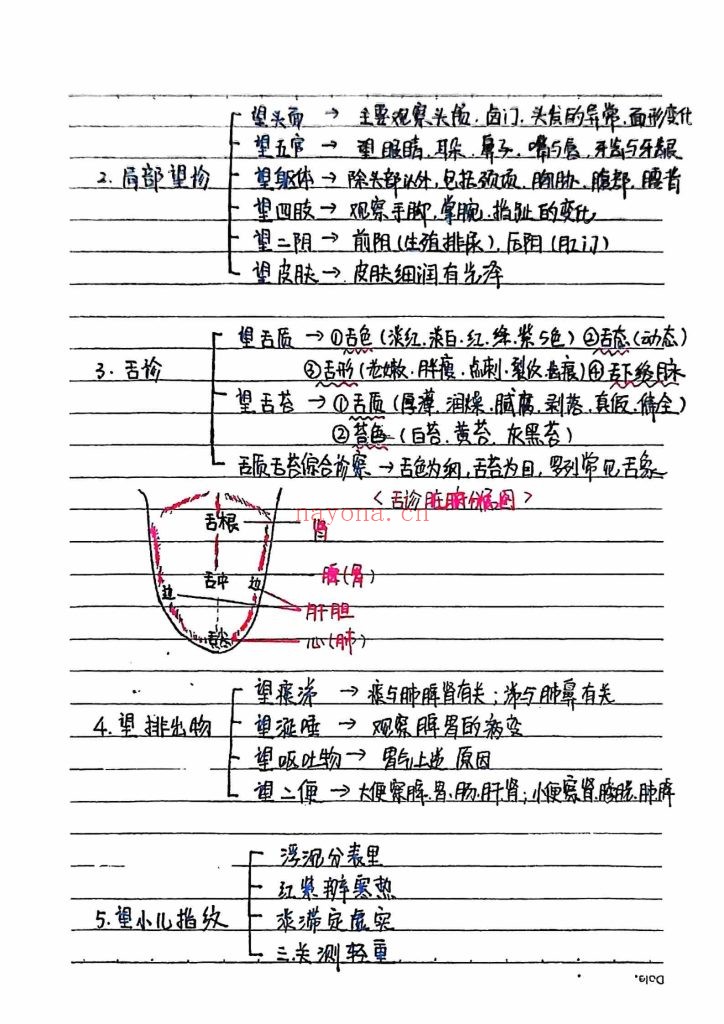 望头面 → 主要观察头颅、囟门、头发的异常、面形变化
望五官 → 望眼睛、耳朵、鼻子、嘴与唇、牙齿与牙龈
2. 局部望诊
望躯体 → 除头部以外,包括颈项、胸胁、腹部、腰背
望四肢 → 观察手脚、掌腕、指趾的变化
望二阴 → 前阴(生殖排尿)、后阴(肛门)
望皮肤 → 皮肤细润有光泽
望舌质 → ①舌色(淡红、淡白、红、绛、紫5色) ②舌态(动态)
3. 舌诊
③舌形(老嫩、胖瘦、点刺、裂纹、齿痕) ④舌下络脉
望舌苔 → ①舌质(厚薄、润燥、腻腐、剥落、真假、偏全)
②苔色(白苔、黄苔、灰黑苔)
舌质舌苔综合诊察 → 舌色为纲,舌苔为目,罗列常见舌象
<舌诊脏腑分候图>
nayona.cn
舌根 肾
舌中 边 脾(胃)
边 肝胆
舌尖 心(肺)
望痰涕 → 痰与肺脾肾有关;涕与肺鼻有关
4. 望排出物
望涎唾 → 观察脾胃的病变
望呕吐物 → 胃气上逆原因
望二便 → 大便察脾、胃、肠、肝肾;小便察肾、膀胱、肺脾
浮沉分表里
红紫辨寒热
5. 望小儿指纹
淡滞定虚实
三关测轻重
Date.